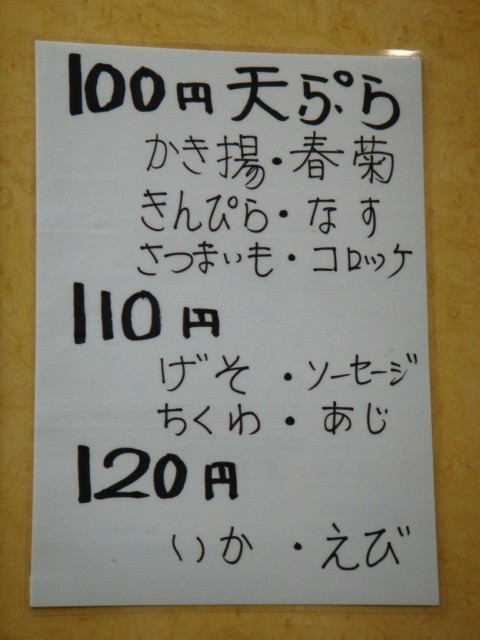 100円天ぷら
かき揚・春菊
きんぴら・なす
さつまいも・コロッケ
110円
げそ・ソーセージ
ちくわ・あじ
120円
いか・えび